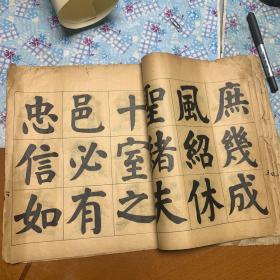 庶幾成
風紹休
聖緒夫
十室之
邑必有
忠信如